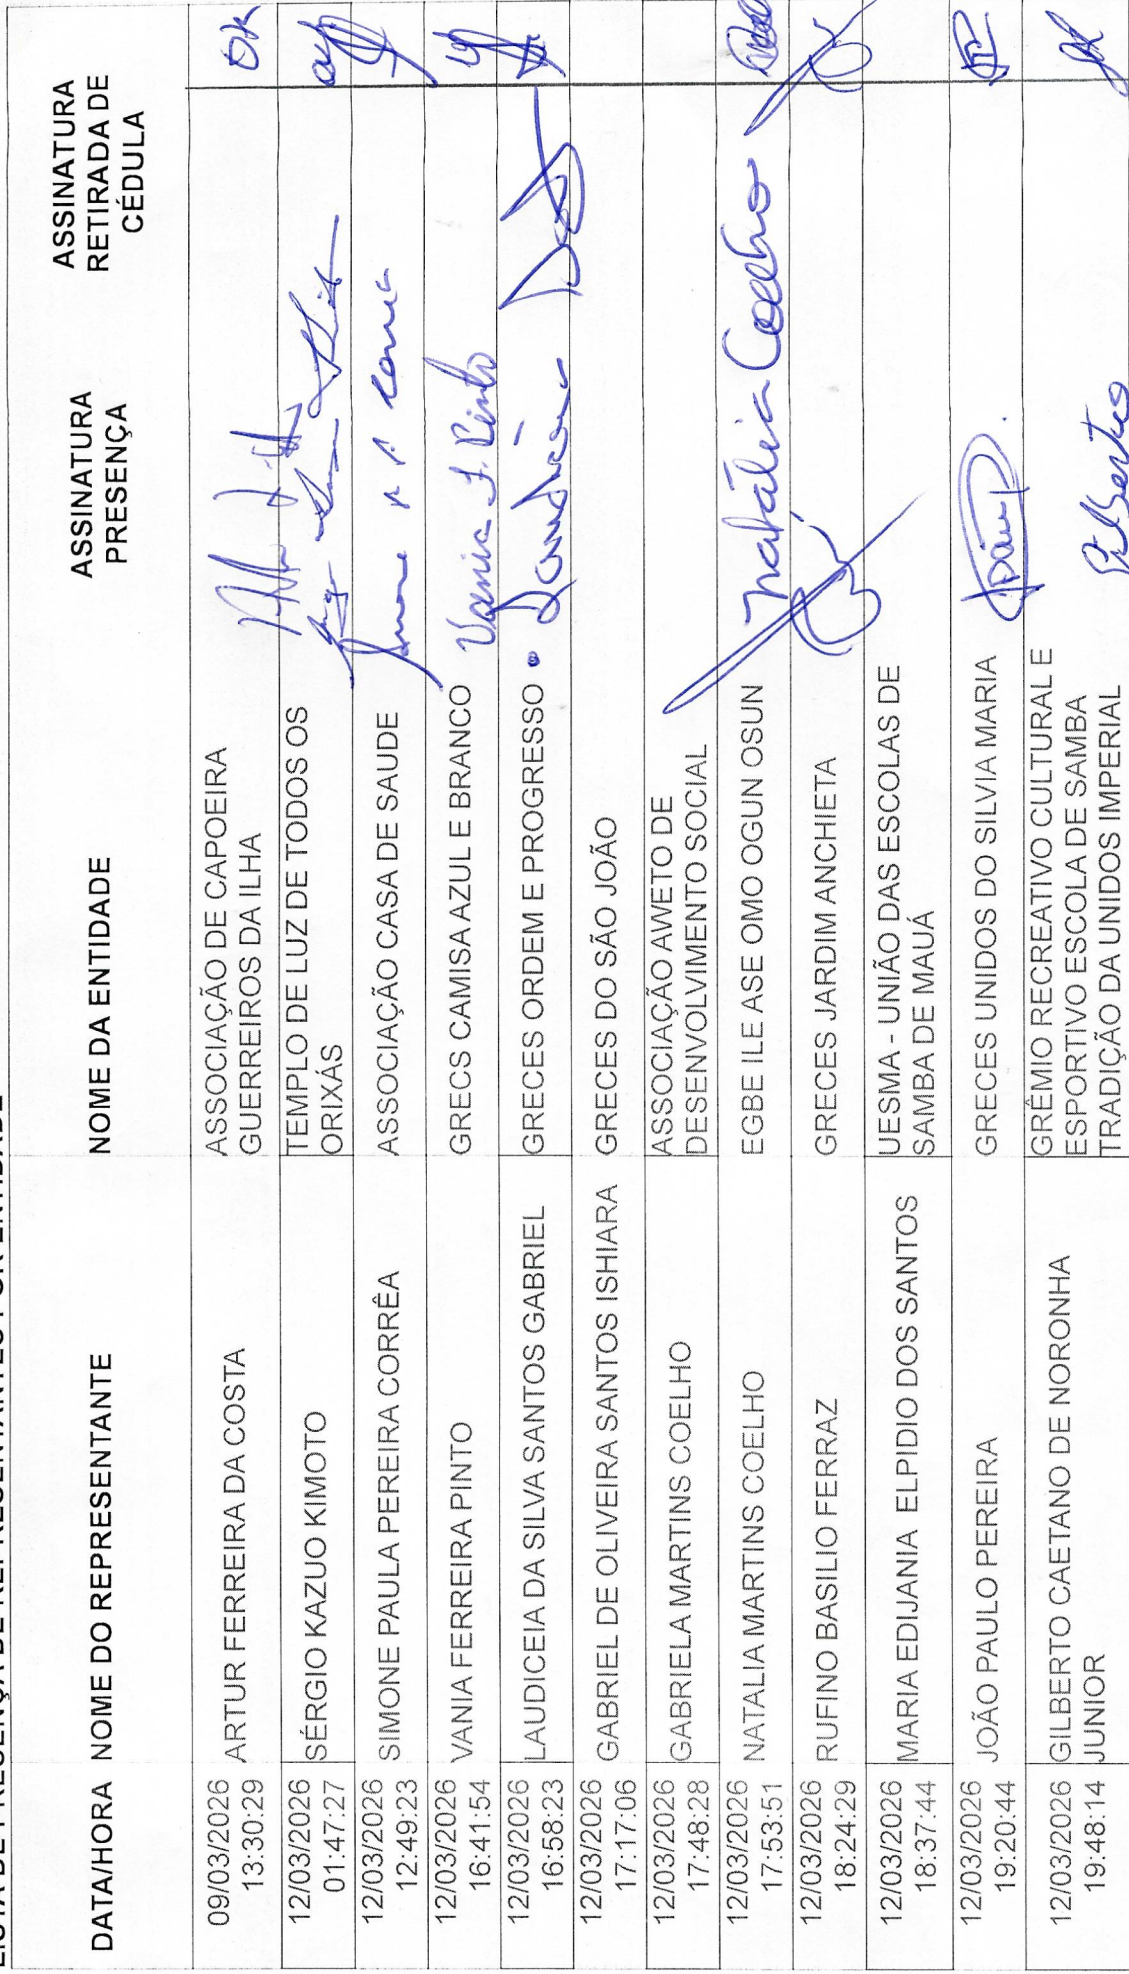 DATA/HORA NOME DO REPRESENTANTE NOME DA ENTIDADE ASSINATURA PRESENÇA ASSINATURA RETIRADA DE CÉDULA
09/03/2026 13:30:29 ARTUR FERREIRA DA COSTA ASSOCIAÇÃO DE CAPOEIRA GUERREIROS DA ILHA OK
12/03/2026 01:47:27 SÉRGIO KAZUO KIMOTO TEMPLO DE LUZ DE TODOS OS ORIXÁS
12/03/2026 12:49:23 SIMONE PAULA PEREIRA CORRÊA ASSOCIAÇÃO CASA DE SAUDE
12/03/2026 16:41:54 VANIA FERREIRA PINTO GRECS CAMISA AZUL E BRANCO Vania F. Pinto
12/03/2026 16:58:23 LAUDICEIA DA SILVA SANTOS GABRIEL GRECES ORDEM E PROGRESSO
12/03/2026 17:17:06 GABRIEL DE OLIVEIRA SANTOS ISHIARA GRECES DO SÃO JOÃO
12/03/2026 17:48:28 GABRIELA MARTINS COELHO ASSOCIAÇÃO AWETO DE DESENVOLVIMENTO SOCIAL
12/03/2026 17:53:51 NATALIA MARTINS COELHO EGBE ILE ASE OMO OGUN OSUN Natália Coelho
12/03/2026 18:24:29 RUFINO BASILIO FERRAZ GRECES JARDIM ANCHIETA
12/03/2026 18:37:44 MARIA EDIJANIA ELPIDIO DOS SANTOS UESMA - UNIÃO DAS ESCOLAS DE SAMBA DE MAUÁ
12/03/2026 19:20:44 JOÃO PAULO PEREIRA GRECES UNIDOS DO SILVIA MARIA
12/03/2026 19:48:14 GILBERTO CAETANO DE NORONHA JUNIOR GRÊMIO RECREATIVO CULTURAL E ESPORTIVO ESCOLA DE SAMBA TRADIÇÃO DA UNIDOS IMPERIAL Gilberto